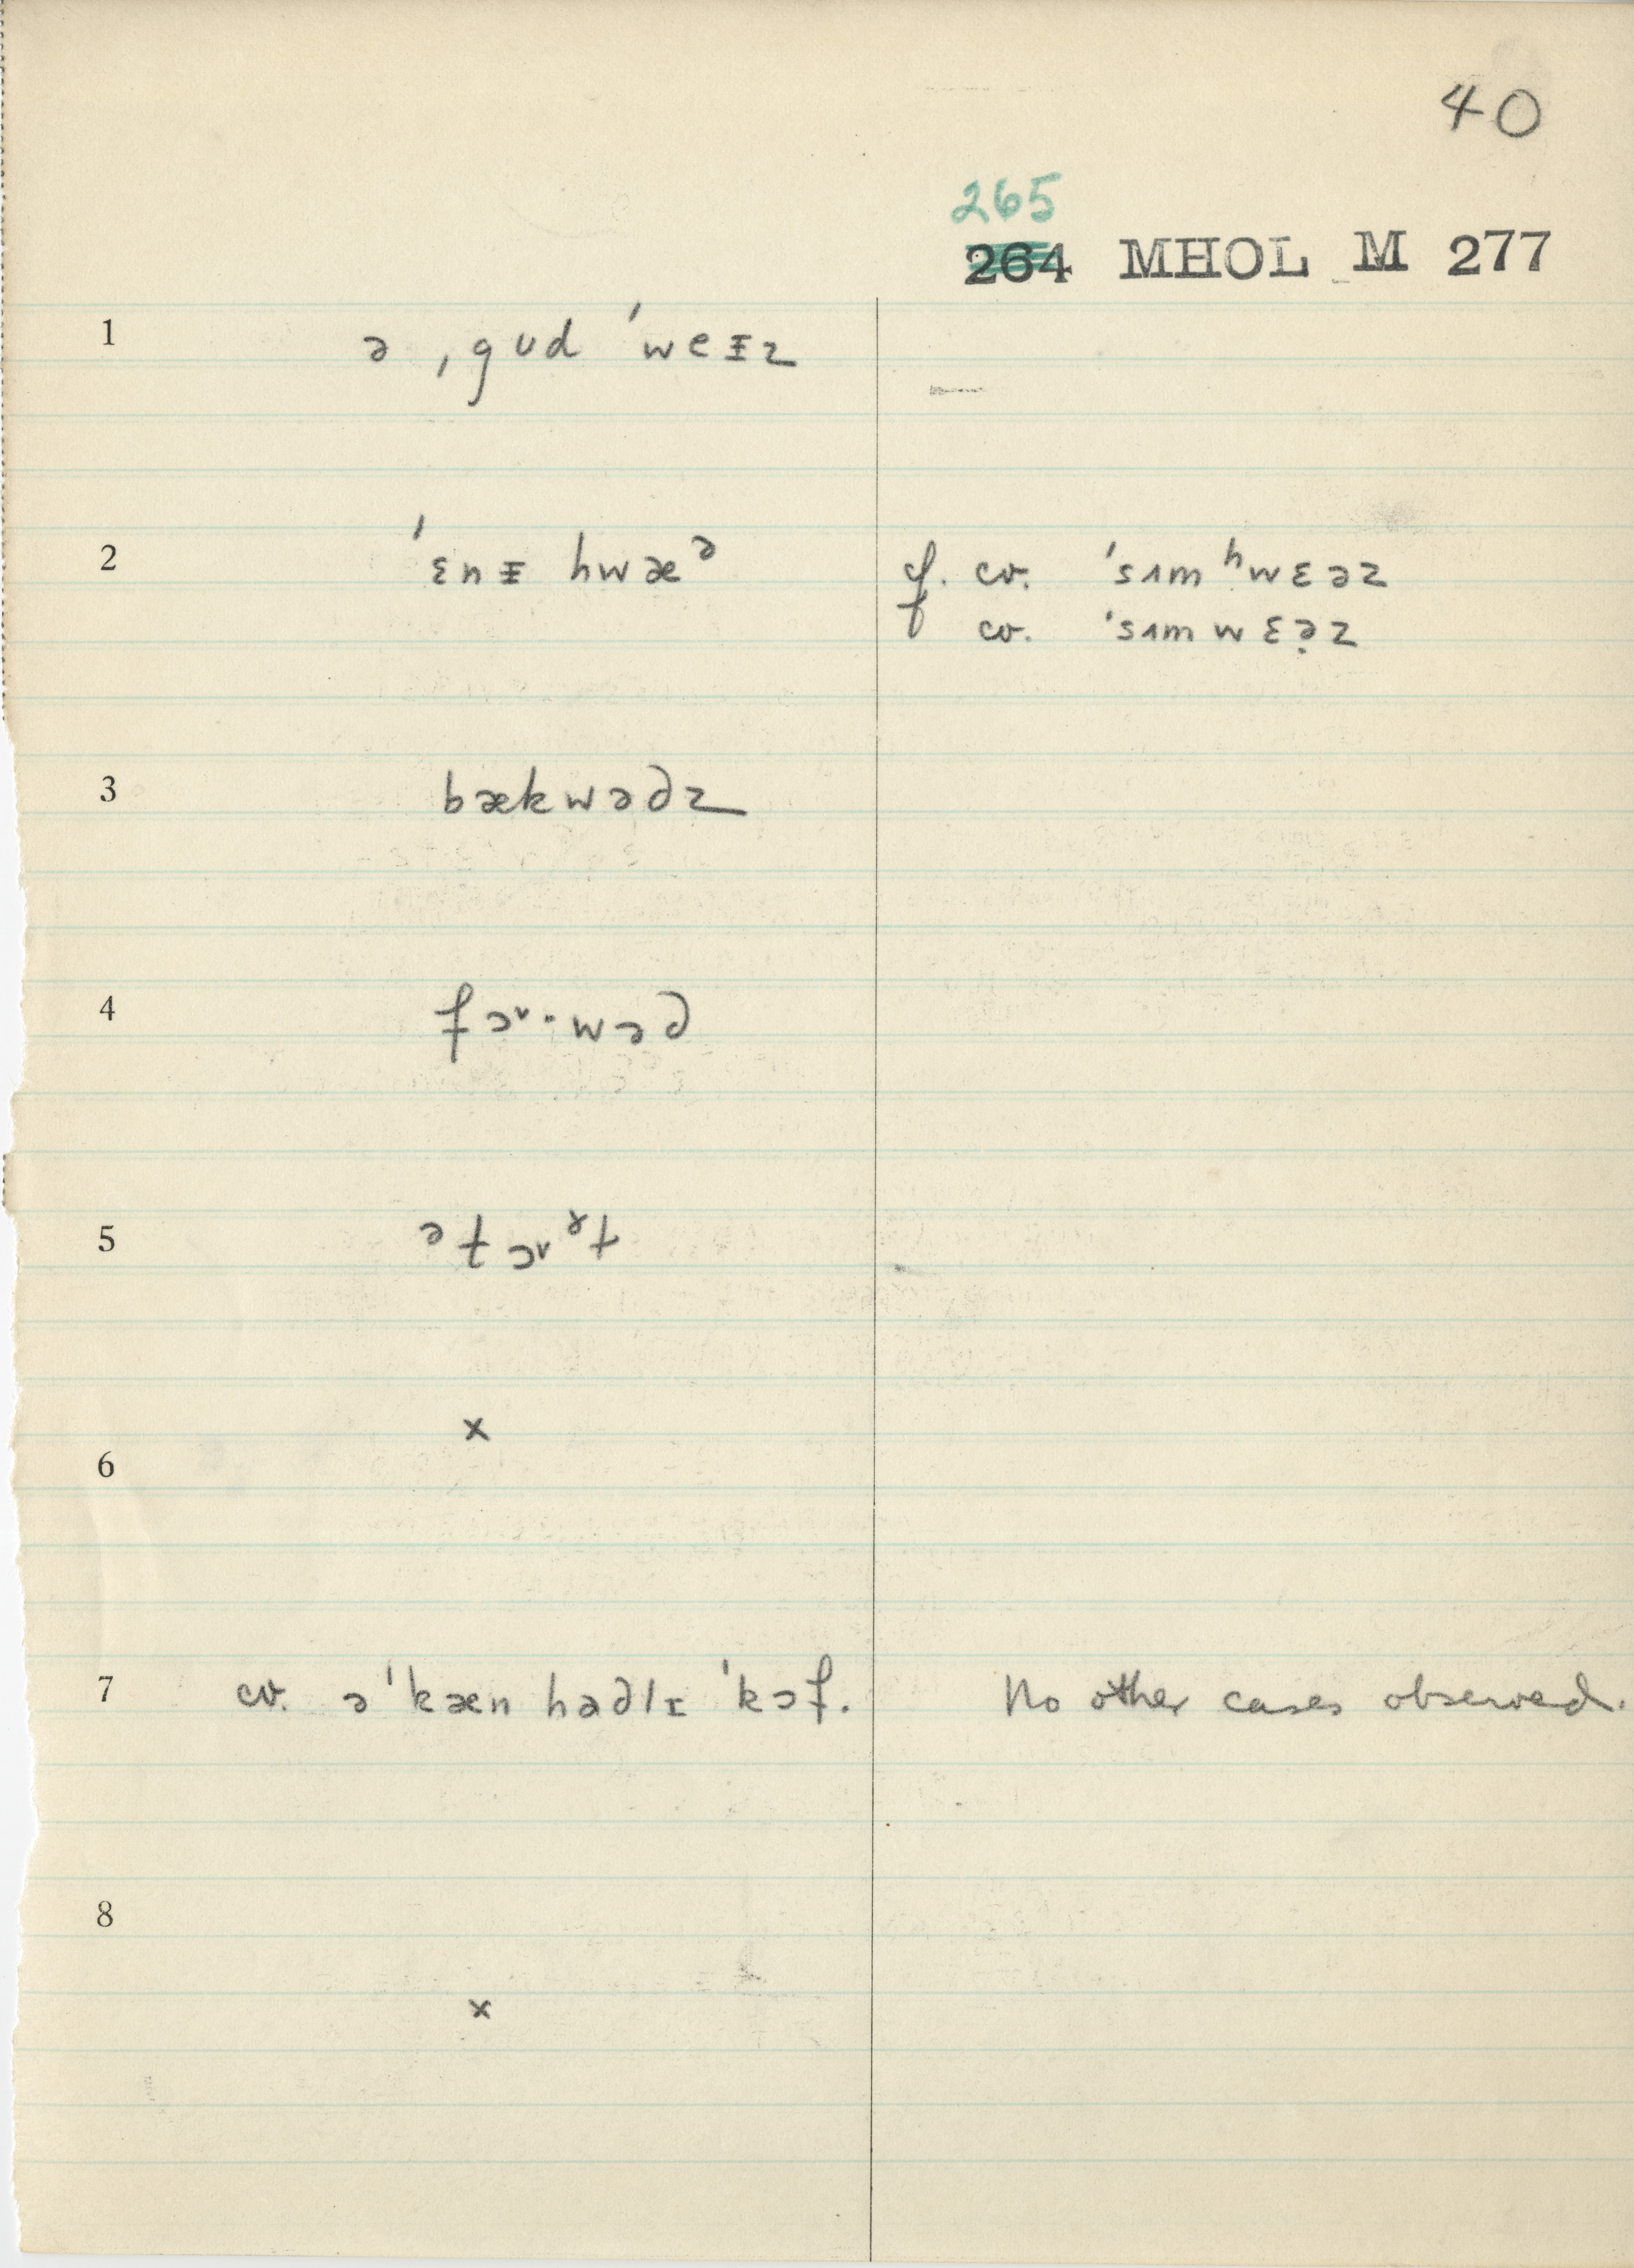 40
265
264 MHOL M 277
1 ə ˌgud ˈweᵻz
2 ˈɛnᵻ hwæᵊ cf. cv. ˈsʌmʰwɛəz
cv. ˈsʌmwɛə̣z
3 bækwə∂z
4 fɔ˞·wə∂
5 ət ɔ˞ ɤt
x
6
7 cv. əˈkæn ha∂lɪ ˈkɔf. No other cases observed.
8
x